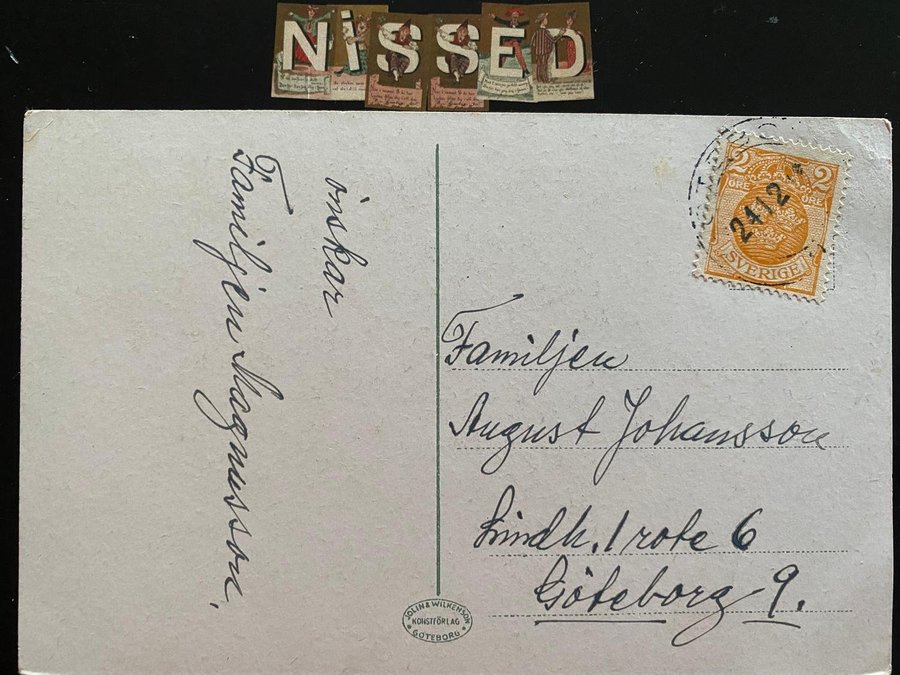 NiSSED
önskar
Familjen Magnusson.
2 2
ÖRE ÖRE
SVERIGE
Familjen
August Johansson
Lindh. 1 rote 6
Göteborg 9.
JOLIN & WILKENSON
KONSTFÖRLAG
GÖTEBORG